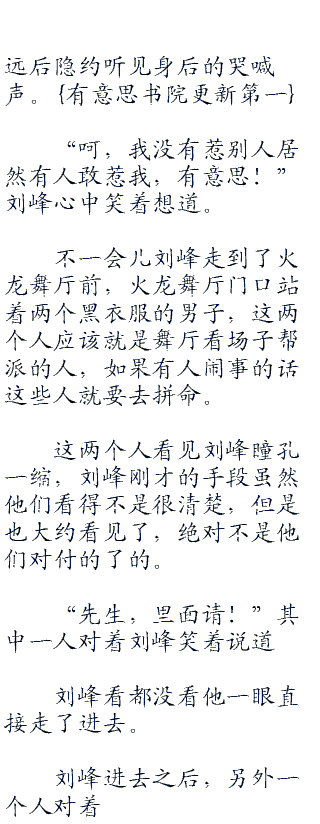 远后隐约听见身后的哭喊
声。{有意思书院更新第一}
“呵，我没有惹别人居
然有人敢惹我，有意思！”
刘峰心中笑着想道。
不一会儿刘峰走到了火
龙舞厅前，火龙舞厅门口站
着两个黑衣服的男子，这两
个人应该就是舞厅看场子帮
派的人，如果有人闹事的话
这些人就要去拼命。
这两个人看见刘峰瞳孔
一缩，刘峰刚才的手段虽然
他们看得不是很清楚，但是
也大约看见了，绝对不是他
们对付的了的。
“先生，里面请！”其
中一人对着刘峰笑着说道
刘峰看都没看他一眼直
接走了进去。
刘峰进去之后，另外一
个人对着